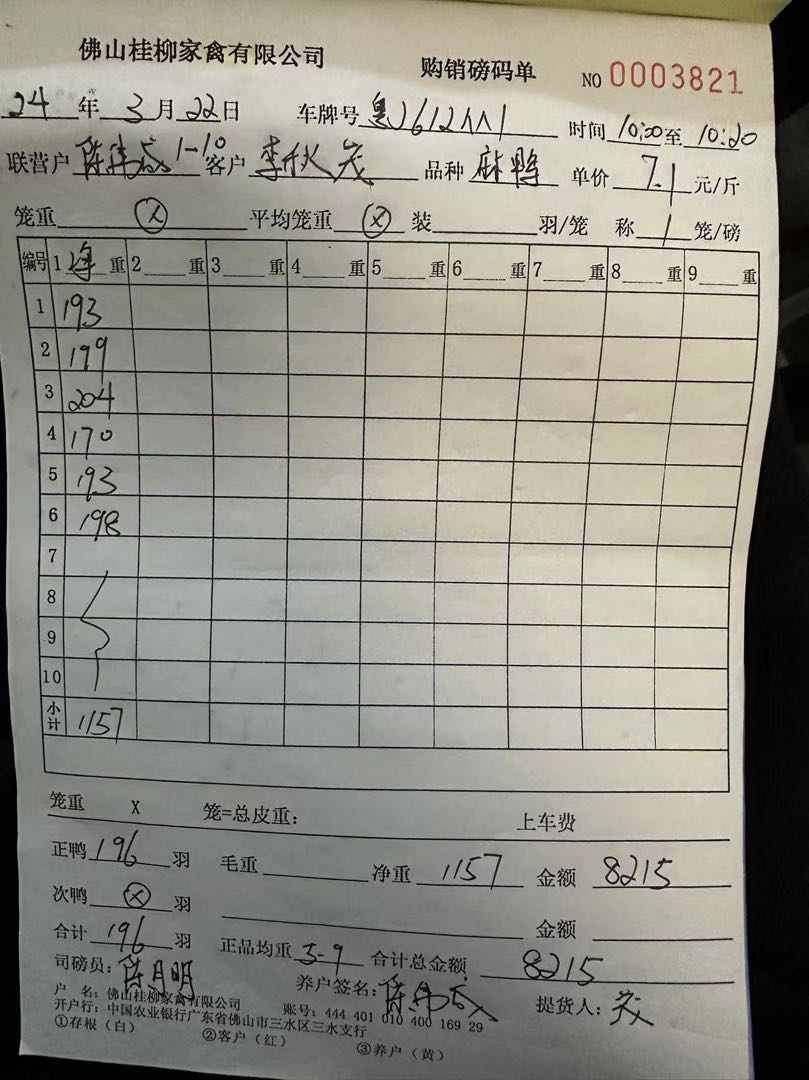 佛山桂柳家禽有限公司
购销磅码单 NO 0003821
24 年 3 月 22 日 车牌号 粤J612 时间 10:00 至 10:20
联营户 陈伟成 1-10 客户 李伙茂 品种 麻鸭 单价 7.1 元/斤
笼重 ⓧ 平均笼重 ⓧ 装 羽/笼 称 1 笼/磅
编号 1 净 重 2 重 3 重 4 重 5 重 6 重 7 重 8 重 9 重
1 193
2 199
3 204
4 170
5 193
6 198
7
8
9
10
小计 1157
笼重 X 笼=总皮重: 上车费
正鸭 196 羽 毛重 净重 1157 金额 8215
次鸭 ⓧ 羽 金额
合计 196 羽 正品均重 5-9 合计总金额 8215
司磅员: 陈月明 养户签名: 陈伟成 提货人: 茂
户 名: 佛山桂柳家禽有限公司 账号: 444 401 010 400 169 29
开户行: 中国农业银行广东省佛山市三水区三水支行
①存根(白) ②客户(红) ③养户(黄)